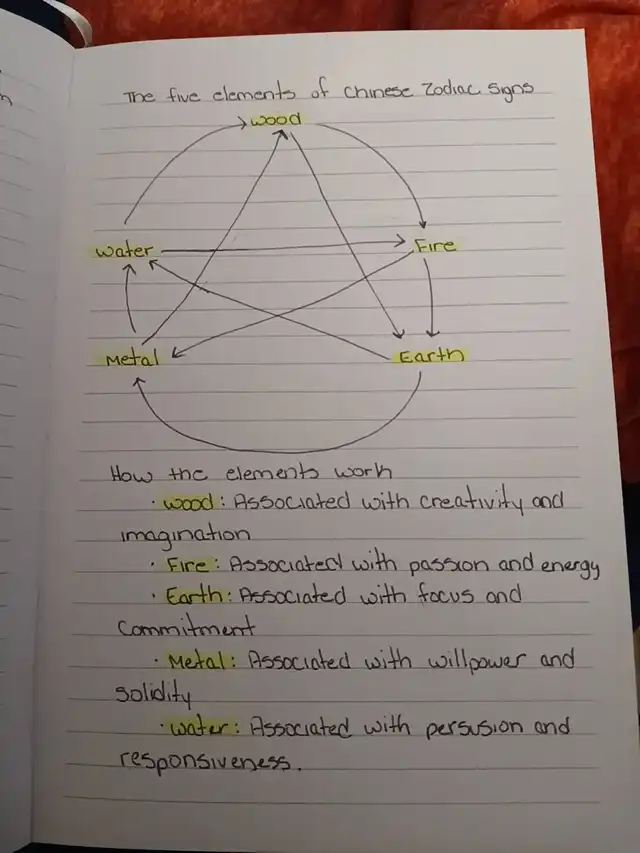 The five elements of Chinese Zodiac signs
wood
water
Fire
Metal
Earth
How the elements work
· wood: Associated with creativity and
imagination
· Fire: Associated with passion and energy
· Earth: Associated with focus and
commitment
· Metal: Associated with willpower and
solidity
· water: Associated with persusion and
responsiveness.